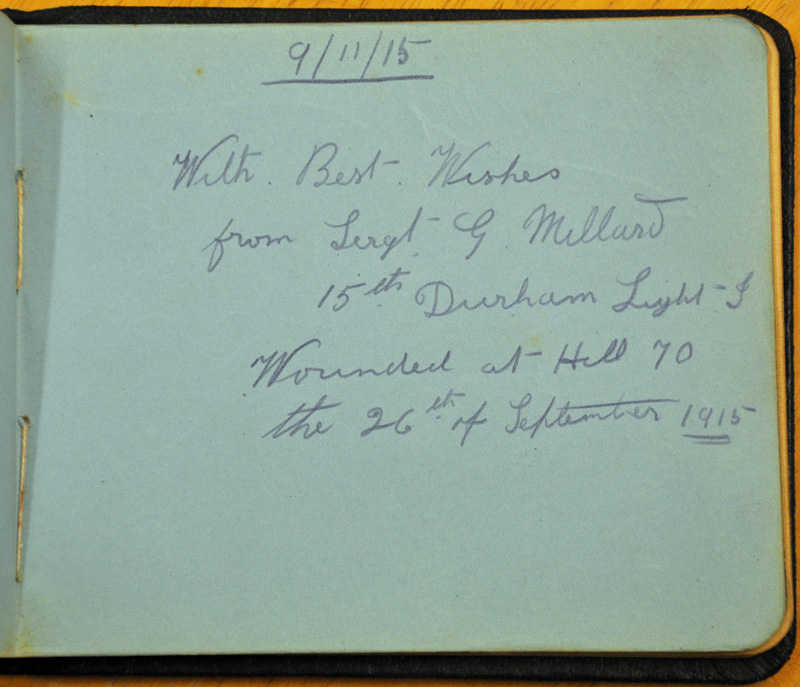 9/11/15
With. Best. Wishes
from Sergt. G Millard
15th Durham Light I
Wounded at Hill 70
the 26th of September 1915